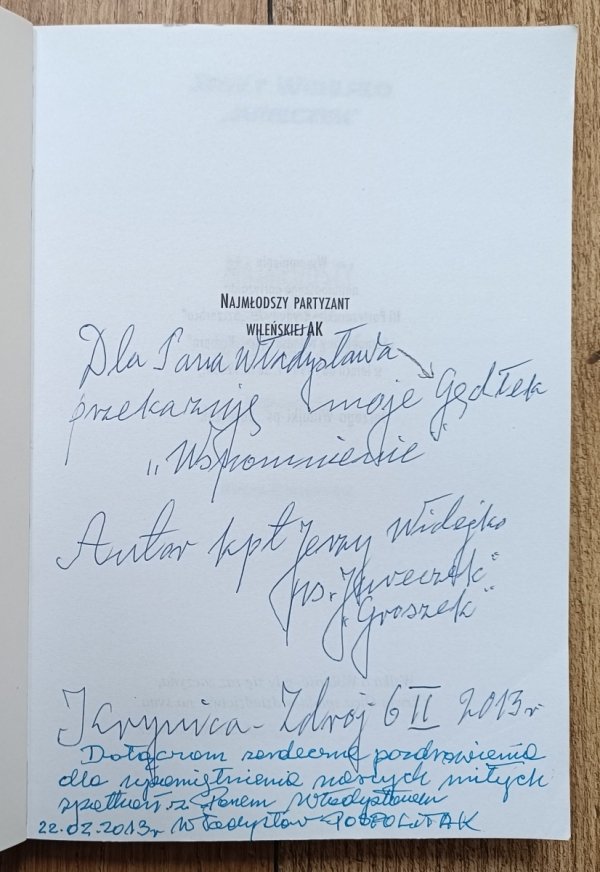 NAJMŁODSZY PARTYZANT
WILEŃSKIEJ AK
Dla Pana Władysława
przekazuję moje Gędłek
„Wspomnienie"
Autor kpt Jerzy Widejko
ps. „Jureczek"
„Groszek"
Krynica-Zdrój 6 II 2013 r
Dołączam serdeczne pozdrowienia
dla upamiętnienia naszych miłych
spotkań z Panem Władysławem
22.02.2013r Władysław